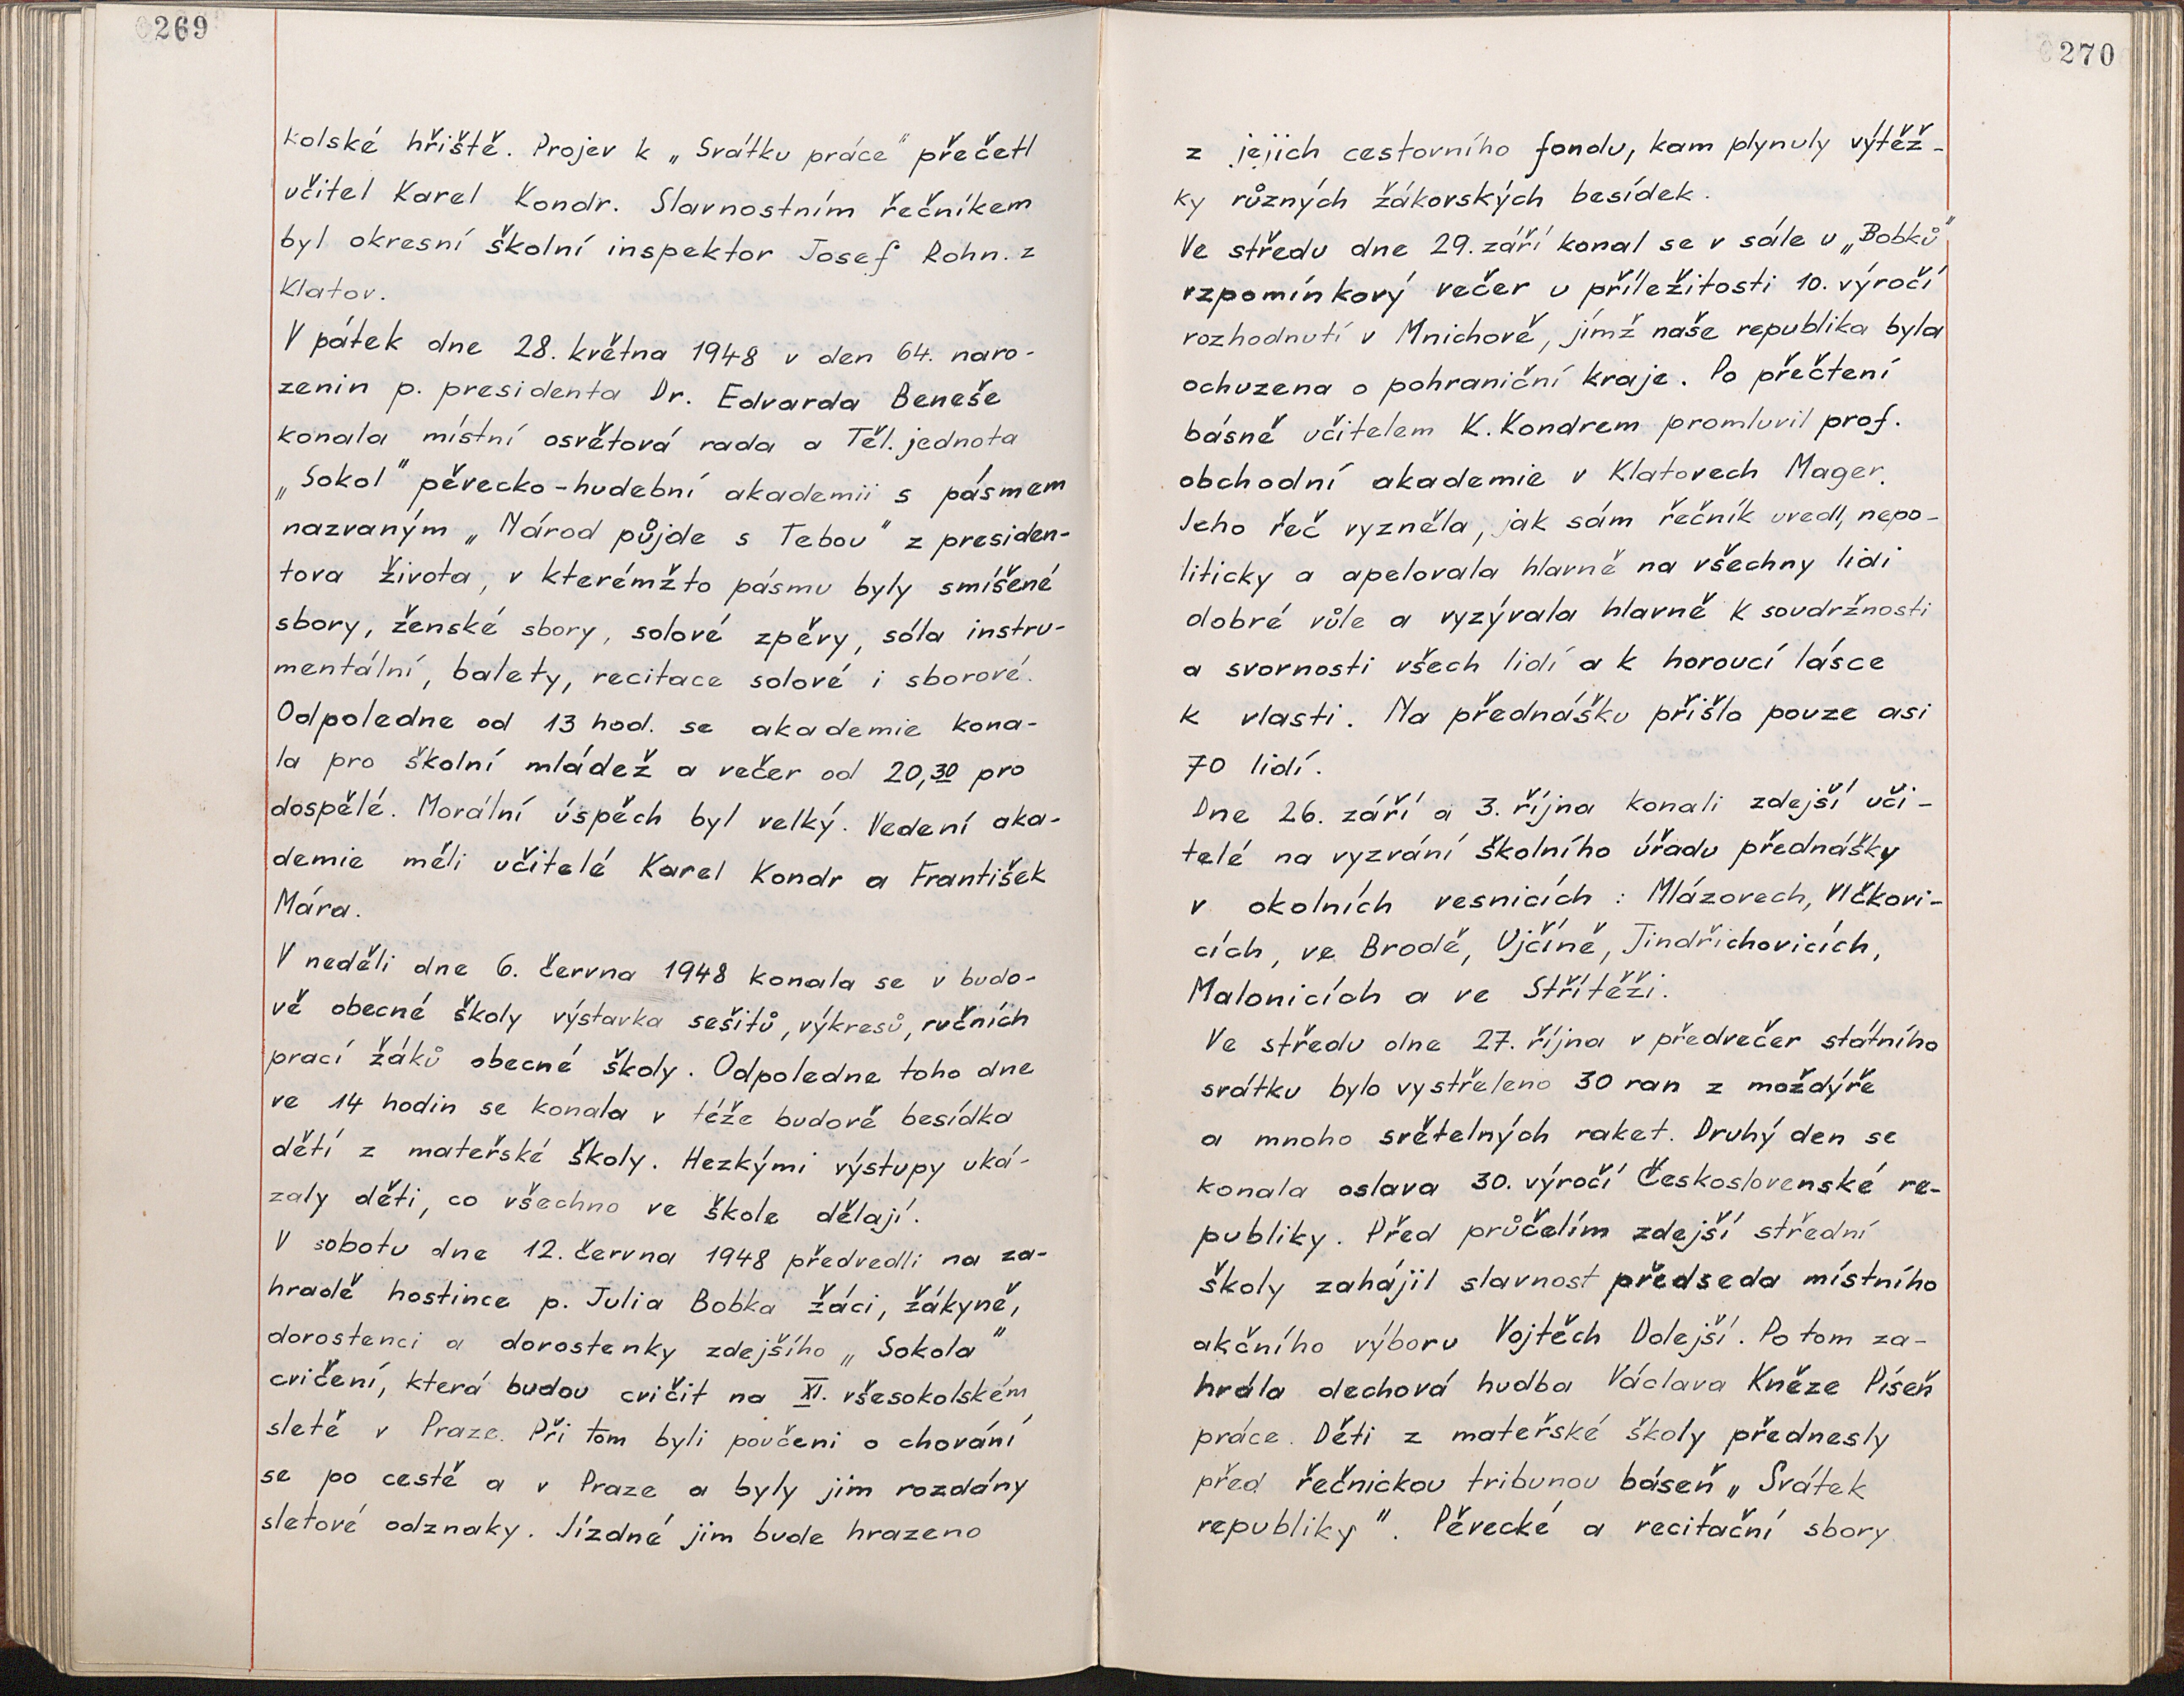 269
kolské hřiště. Projev k „Svátku práce" přečetl
učitel Karel Kondr. Slavnostním řečníkem
byl okresní školní inspektor Josef Rohn. z
Klatov.
V pátek dne 28. května 1948 v den 64. naro-
zenin p. presidenta Dr. Edvarda Beneše
konala místní osvětová rada a Těl. jednota
„Sokol" pěvecko-hudební akademii s pásmem
nazvaným „Národ půjde s Tebou" z presiden-
tova života, v kterémžto pásmu byly smíšené
sbory, ženské sbory, solové zpěvy, sóla instru-
mentální, balety, recitace solové i sborové.
Odpoledne od 13 hod. se akademie kona-
la pro školní mládež a večer od 20,30 pro
dospělé. Morální úspěch byl velký. Vedení aka-
demie měli učitelé Karel Kondr a František
Mára.
V neděli dne 6. června 1948 konala se v budo-
vě obecné školy výstavka sešitů, výkresů, ručních
prací žáků obecné školy. Odpoledne toho dne
ve 14 hodin se konala v téže budově besídka
dětí z mateřské školy. Hezkými výstupy uká-
zaly děti, co všechno ve škole dělají.
V sobotu dne 12. června 1948 předvedli na za-
hradě hostince p. Julia Bobka žáci, žákyně,
dorostenci a dorostenky zdejšího „Sokola"
cvičení, která budou cvičit na XI. všesokolském
sletě v Praze. Při tom byli poučeni o chování
se po cestě a v Praze a byly jim rozdány
sletové odznaky. Jízdné jim bude hrazeno
270
z jejich cestovního fondu, kam plynuly výtěž-
ky různých žákovských besídek.
Ve středu dne 29. září konal se v sále u „Bobků"
vzpomínkový večer u příležitosti 10. výročí
rozhodnutí v Mnichově, jímž naše republika byla
ochuzena o pohraniční kraje. Po přečtení
básně učitelem K. Kondrem promluvil prof.
obchodní akademie v Klatovech Mager.
Jeho řeč vyzněla, jak sám řečník uvedl, nepo-
liticky a apelovala hlavně na všechny lidi
dobré vůle a vyzývala hlavně k soudržnosti
a svornosti všech lidí a k horoucí lásce
k vlasti. Na přednášku přišlo pouze asi
70 lidí.
Dne 26. září a 3. října konali zdejší uči-
telé na vyzvání školního úřadu přednášky
v okolních vesnicích: Mlázovech, Vlčkovi-
cích, ve Brodě, Ujčíně, Jindřichovicích,
Malonicích a ve Střítěži.
Ve středu dne 27. října v předvečer státního
svátku bylo vystřeleno 30 ran z moždýře
a mnoho světelných raket. Druhý den se
konala oslava 30. výročí Československé re-
publiky. Před průčelím zdejší střední
školy zahájil slavnost předseda místního
akčního výboru Vojtěch Dolejší. Po tom za-
hrála dechová hudba Václava Kněze Píseň
práce. Děti z mateřské školy přednesly
před řečnickou tribunou báseň „Svátek
republiky". Pěvecké a recitační sbory